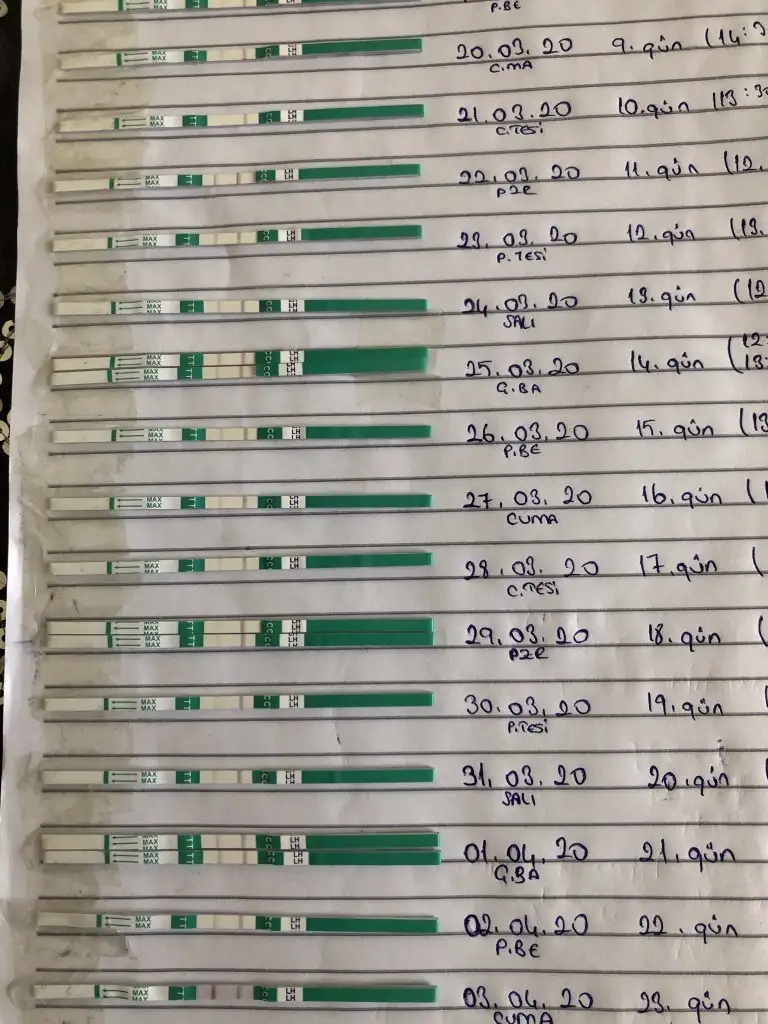 P.BE
MAX LH 20.03.20 9.gün (14:
MAX LH C.MA
MAX LH 21.03.20 10.gün (13:30
MAX LH C.TESİ
MAX TT CC LH 22.03.20 11.gün (12.
MAX LH PZR
MAX TT CC LH 23.03.20 12.gün (13.
MAX LH P.TESİ
MAX TT CC LH 24.03.20 13.gün (12
MAX LH SALI
MAX TT CC LH 25.03.20 14.gün (12:
MAX LH Ç.BA 13:
MAX TT CC LH 26.03.20 15.gün (13
MAX LH P.BE
MAX TT CC LH 27.03.20 16.gün (1
MAX LH CUMA
MAX TT CC LH 28.03.20 17.gün (
MAX LH C.TESİ
MAX TT CC LH 29.03.20 18.gün (
MAX LH PZR
MAX TT CC LH 30.03.20 19.gün
MAX LH P.TESİ
MAX TT CC LH 31.03.20 20.gün
MAX LH SALI
MAX TT CC LH 01.04.20 21.gün
MAX LH Ç.BA
MAX TT CC LH 02.04.20 22.gün
MAX LH P.BE
MAX TT CC LH 03.04.20 23.gün
MAX LH CUMA